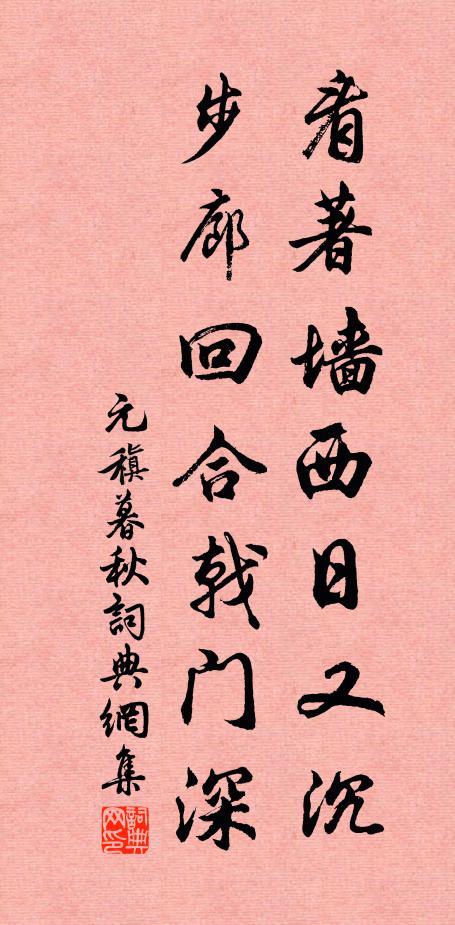 看著墙西日又沉
步廊回合戟门深
元稹暮秋詞典網集
詞典
网印